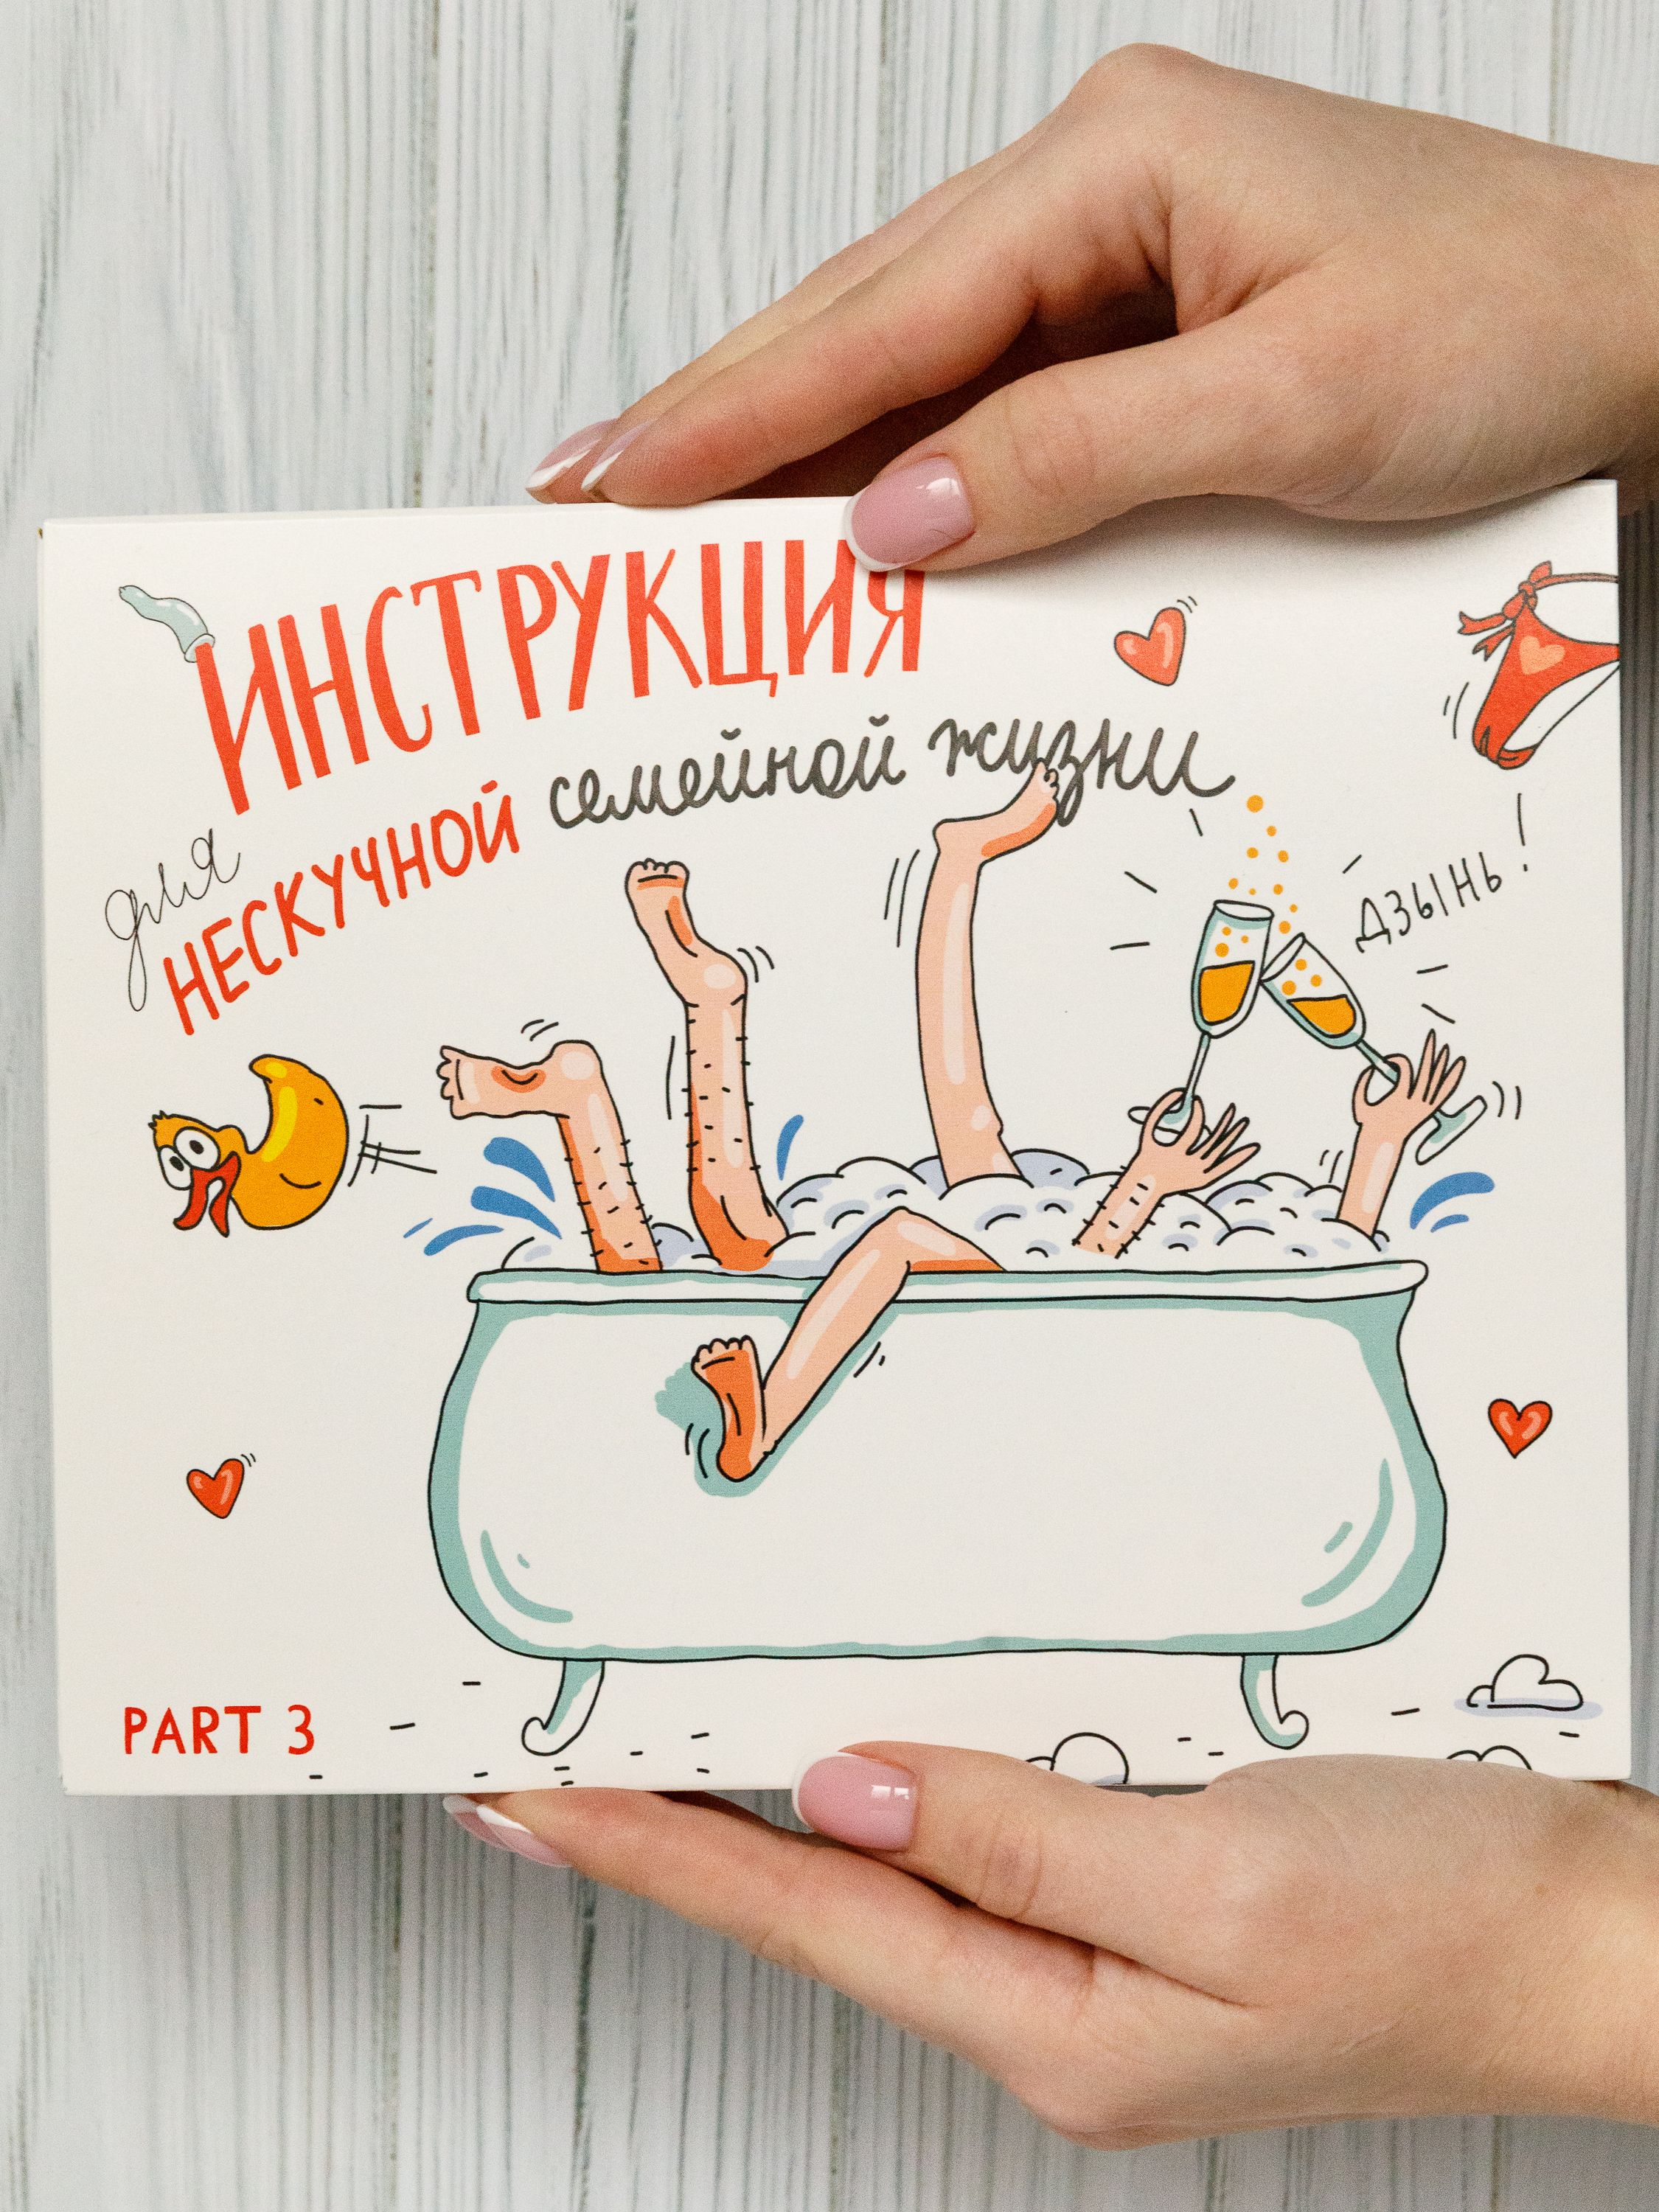 ИНСТРУКЦИЯ
для
НЕСКУЧНОЙ семейной жизни
ДЗЫНЬ!
PART 3